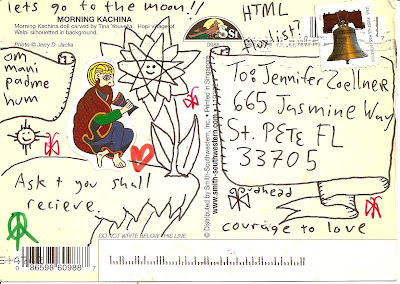 lets go to the moon!!
MORNING KACHINA
Morning Kachina doll carved by Tina Youvella. Hopi village of
Walpi silhouetted in background.
Photo © Jerry D. Jacka
om
mani
padme
hum
Ask + you shall
recieve.
DO NOT WRITE BELOW THIS LINE
0 86598 60988 7
© Distributed by Smith-Southwestern, Inc. • Printed in Singapore
www.smith-southwestern.com
HTML
Playlist?
To: Jennifer Zoellner
665 Jasmine Way
St. PETE FL
33705
courage to love